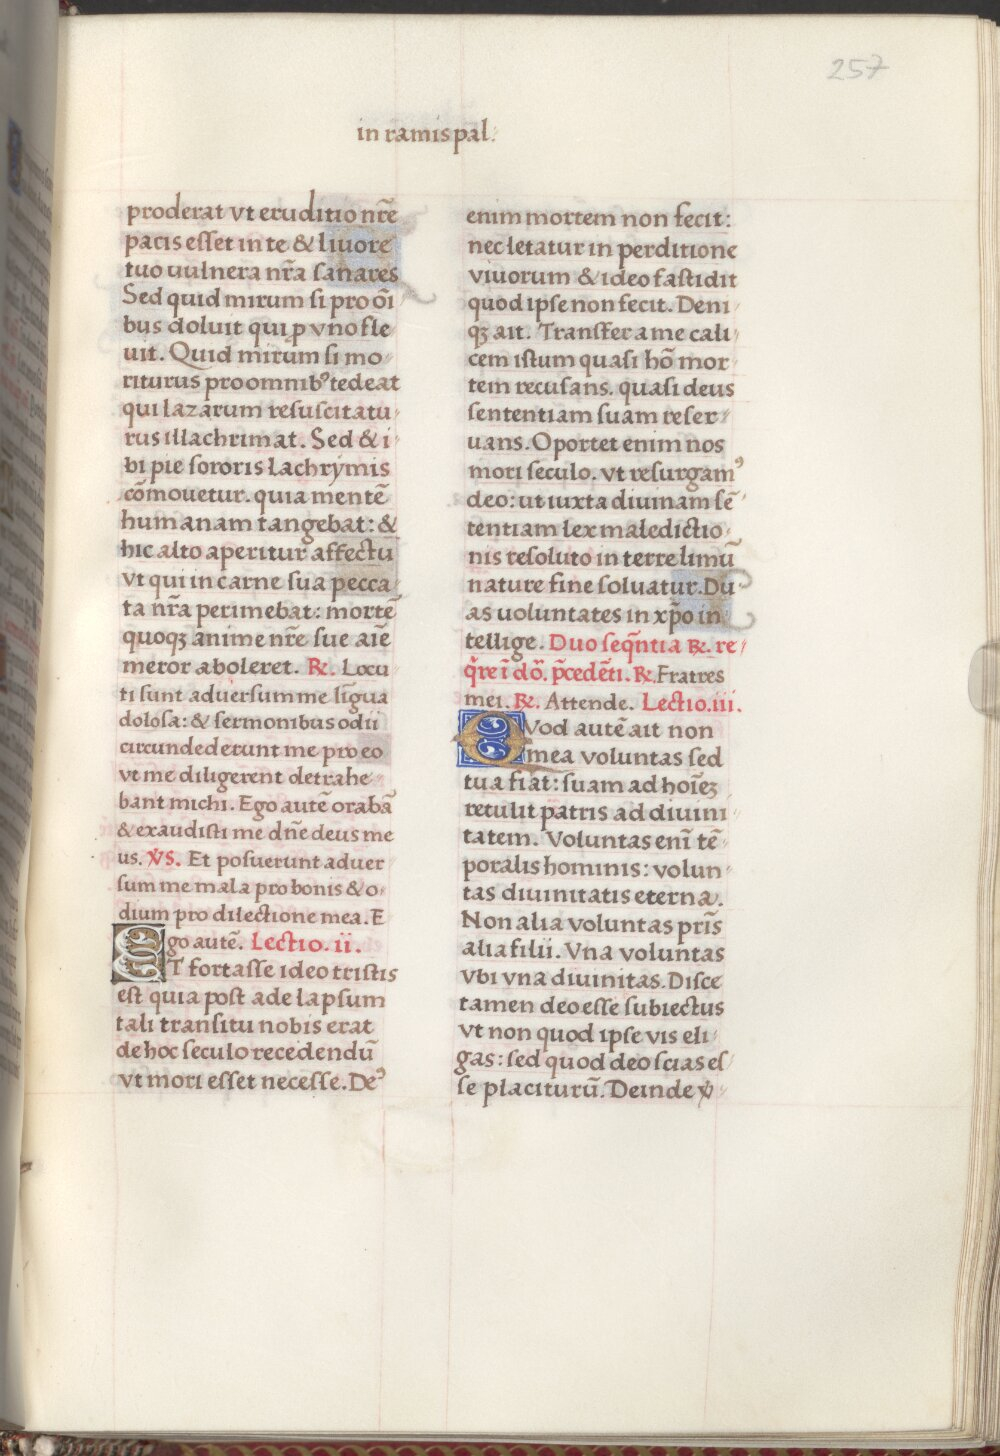 257
in ramis pal.
proderat vt eruditio nr̄e
pacis esset in te & liuore
tuo uulnera nr̄a sanares
Sed quid mirum si pro oī
bus doluit qui ꝓ vno fle
uit. Quid mirum si mo
riturus pro omnibꝰ tedeat
qui lazarum resuscitatu
rus illachrimat. Sed & i
bi pie sororis lachrymis
cōmouetur. quia mentē
humanam tangebat: &
hic alto aperitur affectu
vt qui in carne sua pecca
ta nr̄a perimebat: mortē
quoqꝫ anime nr̄e sue aīe
meror aboleret. ℟. Locu
ti sunt aduersum me līgua
dolosa: & sermonibus odii
circundederunt me pro eo
vt me diligerent detrahe
bant michi. Ego autē orabā
& exaudisti me dn̄e deus me
us. V̄S. Et posuerunt aduer
sum me mala pro bonis & o
dium pro dilectione mea. E
go autē. Lectio. ii.
ET fortasse ideo tristis
est quia post ade lapsum
tali transitu nobis erat
de hoc seculo recedendū
vt mori esset necesse. Deꝰ
enim mortem non fecit:
nec letatur in perditione
viuorum & ideo fastidit
quod ipse non fecit. Deni
qꝫ ait. Transfer a me cali
cem istum quasi hō mor
tem recusans. quasi deus
sententiam suam reser
uans. Oportet enim nos
mori seculo. vt resurgamꝰ
deo: ut iuxta diuinam sē
tentiam lex maledictio
nis resoluto in terre limū
nature fine soluatur. Du
as uoluntates in xp̄o in
tellige. Duo seq̄ntia ℟. re
q̄re ī dō. p̄cedēti. ℟. Fratres
mei. ℟. Attende. Lectio. iii.
QVod autē ait non
mea voluntas sed
tua fiat: suam ad hoīeꝫ
retulit patris ad diuini
tatem. Voluntas enī tē
poralis hominis: volun
tas diuinitatis eterna.
Non alia voluntas pr̄is
alia filii. Vna voluntas
vbi vna diuinitas. Disce
tamen deo esse subiectus
vt non quod ipse vis eli
gas: sed quod deo scias es
se placiturū. Deinde